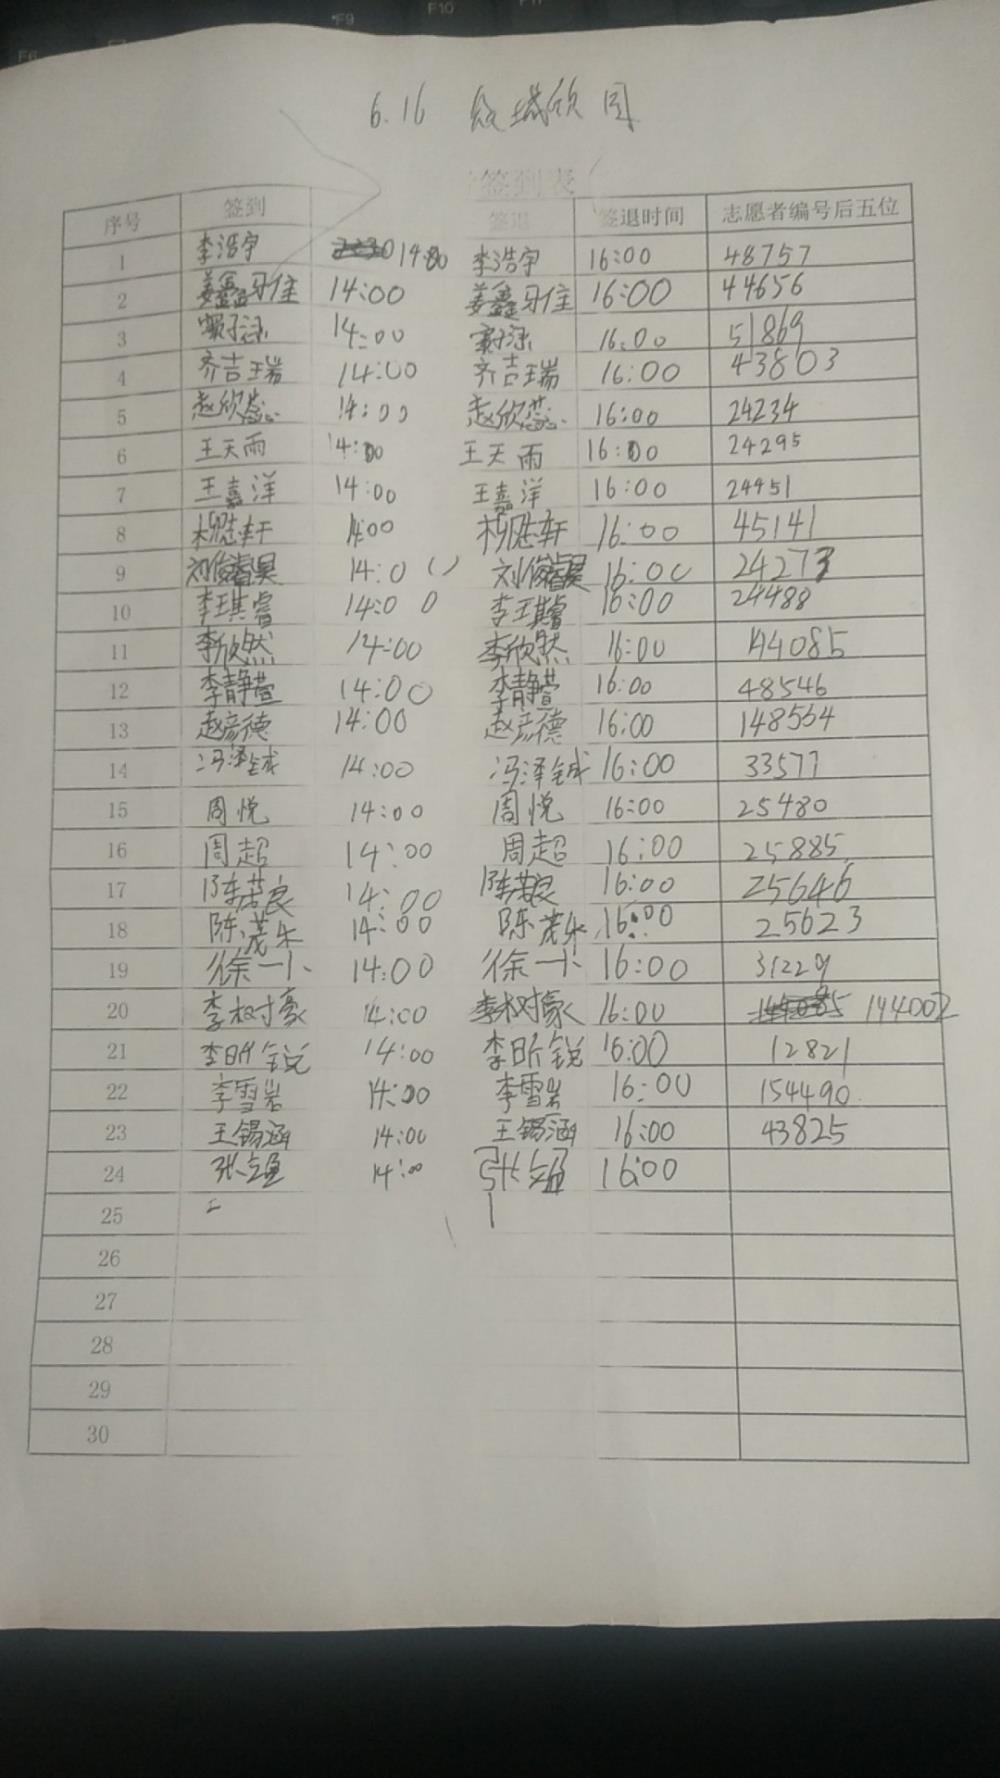 F9 F10
6.16
签到表
序号 签到 签退 签退时间 志愿者编号后五位
1 李浩宇 14:00 李浩宇 16:00 48757
2 姜鑫 14:00 姜鑫 16:00 44656
3 14:00 16:00 51869
4 齐吉瑞 14:00 齐吉瑞 16:00 43803
5 赵欣蕊 14:00 赵欣蕊 16:00 24234
6 王天雨 14:00 王天雨 16:00 24295
7 王嘉洋 14:00 王嘉洋 16:00 24451
8 14:00 16:00 45141
9 刘俊睿昊 14:00 刘俊睿昊 16:00 24273
10 李琪睿 14:00 李琪睿 16:00 24488
11 李欣然 14:00 李欣然 16:00 144085
12 李静萱 14:00 李静萱 16:00 48546
13 赵彦德 14:00 赵彦德 16:00 148554
14 冯泽铖 14:00 冯泽铖 16:00 33577
15 周悦 14:00 周悦 16:00 25480
16 周超 14:00 周超 16:00 25885
17 陈茂良 14:00 陈茂良 16:00 25646
18 陈茂乐 14:00 陈茂乐 16:00 25623
19 徐一卜 14:00 徐一卜 16:00 31229
20 李树豪 14:00 李树豪 16:00 144002
21 李昕锐 14:00 李昕锐 16:00 12821
22 李雪岩 14:00 李雪岩 16:00 154490
23 王锡涵 14:00 王锡涵 16:00 43825
24 14:00 16:00
25
26
27
28
29
30